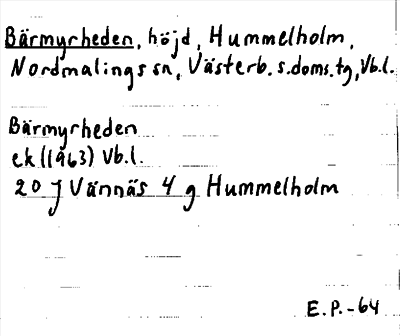 Bärmyrheden, höjd, Hummelholm,
Nordmalings sn, Västerb. s. doms. tg, Vb.l.
Bärmyrheden
ek (1963) Vb.l.
20 J Vännäs 4 g Hummelholm
E.P.-64